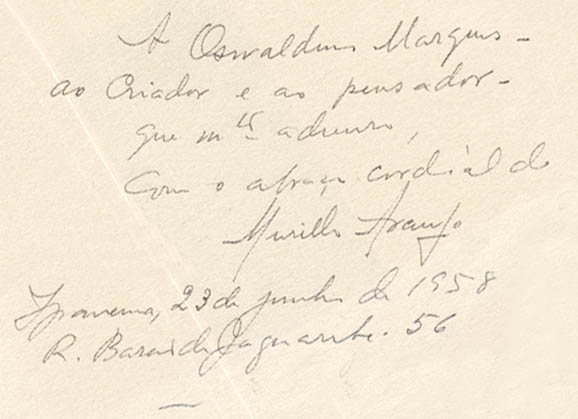 A Oswaldino Marques -
ao Criador e ao pensador -
que mto admiro,
Com o abraço cordial de
Murillo Araujo
Ipanema, 23 de junho de 1958
R. Barão de Jaguaribe. 56